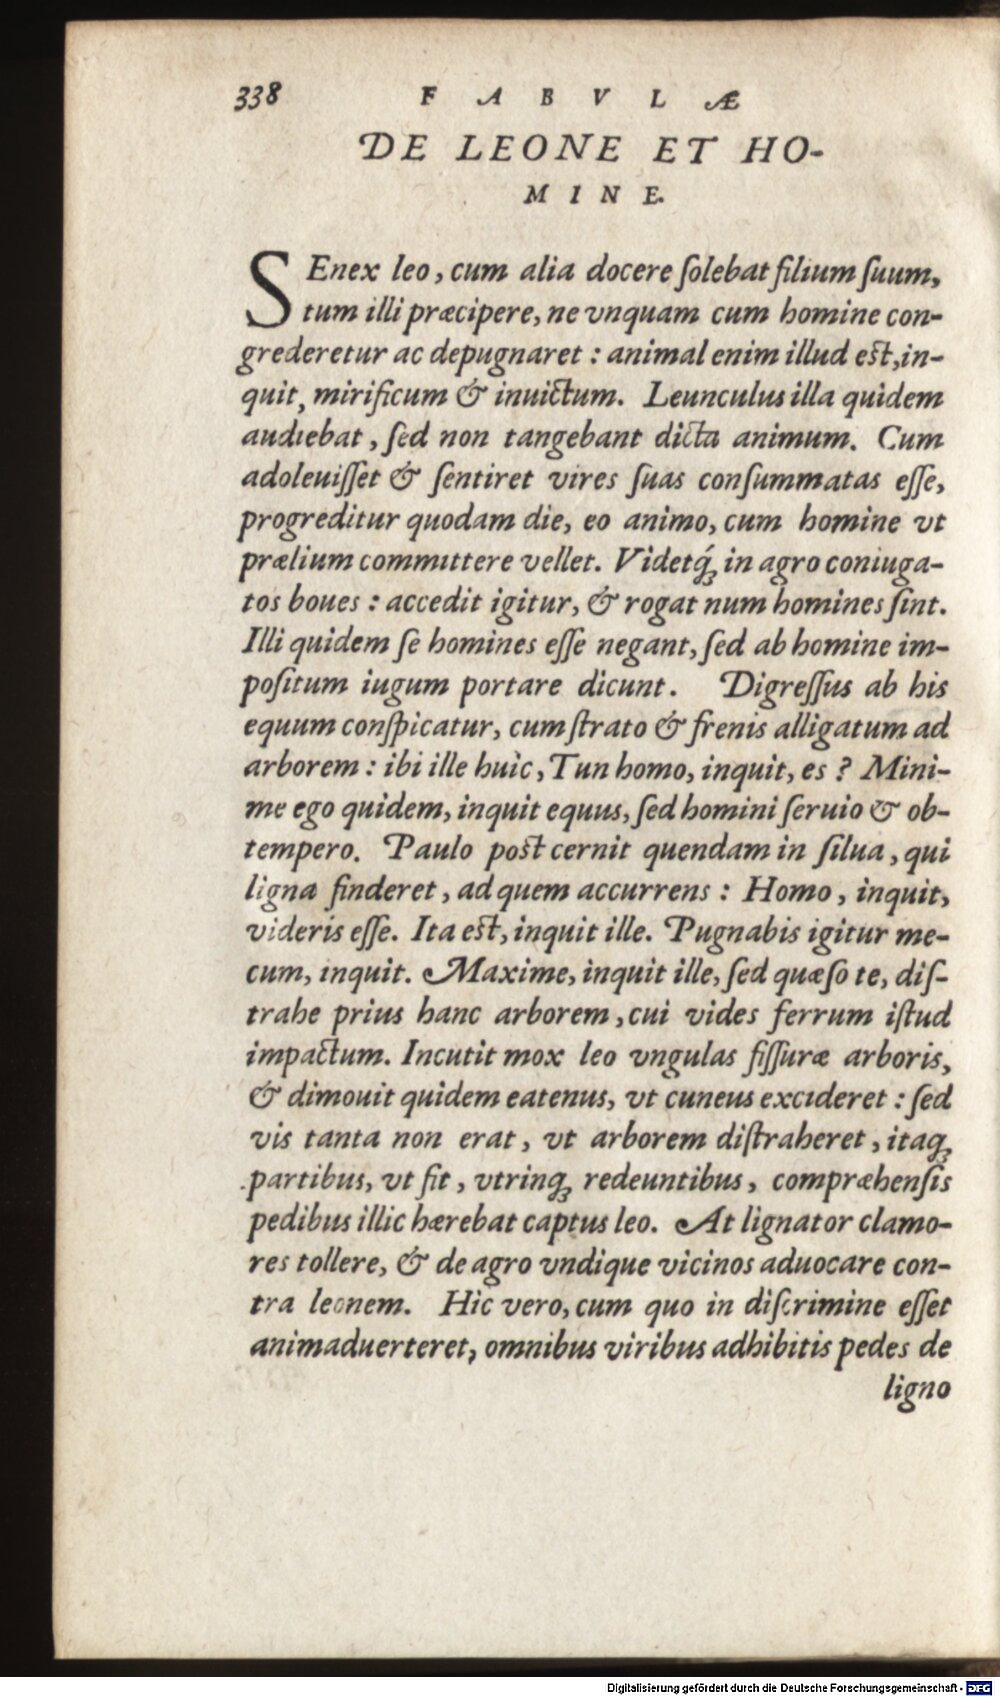 338 FABVLÆ
DE LEONE ET HO-
MINE.
SEnex leo, cum alia docere ſolebat filium ſuum,
tum illi præcipere, ne vnquam cum homine con-
grederetur ac depugnaret : animal enim illud eſt, in-
quit, mirificum & inuictum. Leunculus illa quidem
audiebat, ſed non tangebant dicta animum. Cum
adoleuiſſet & ſentiret vires ſuas conſummatas eſſe,
progreditur quodam die, eo animo, cum homine vt
prælium committere vellet. Videtq́ꝫ in agro coniuga-
tos boues : accedit igitur, & rogat num homines ſint.
Illi quidem ſe homines eſſe negant, ſed ab homine im-
poſitum iugum portare dicunt. Digreſſus ab his
equum conſpicatur, cum ſtrato & frenis alligatum ad
arborem : ibi ille huic, Tun homo, inquit, es ? Mini-
me ego quidem, inquit equus, ſed homini ſeruio & ob-
tempero. Paulo poſt cernit quendam in ſilua, qui
ligna finderet, ad quem accurrens : Homo, inquit,
videris eſſe. Ita eſt, inquit ille. Pugnabis igitur me-
cum, inquit. Maxime, inquit ille, ſed quæſo te, diſ-
trahe prius hanc arborem, cui vides ferrum iſtud
impactum. Incutit mox leo vngulas fiſſuræ arboris,
& dimouit quidem eatenus, vt cuneus excideret : ſed
vis tanta non erat, vt arborem diſtraheret, itaqꝫ
partibus, vt fit, vtrinqꝫ redeuntibus, compræhenſis
pedibus illic hærebat captus leo. At lignator clamo-
res tollere, & de agro vndique vicinos aduocare con-
tra leonem. Hic vero, cum quo in diſcrimine eſſet
animaduerteret, omnibus viribus adhibitis pedes de
ligno
Digitalisierung gefördert durch die Deutsche Forschungsgemeinschaft - DFG